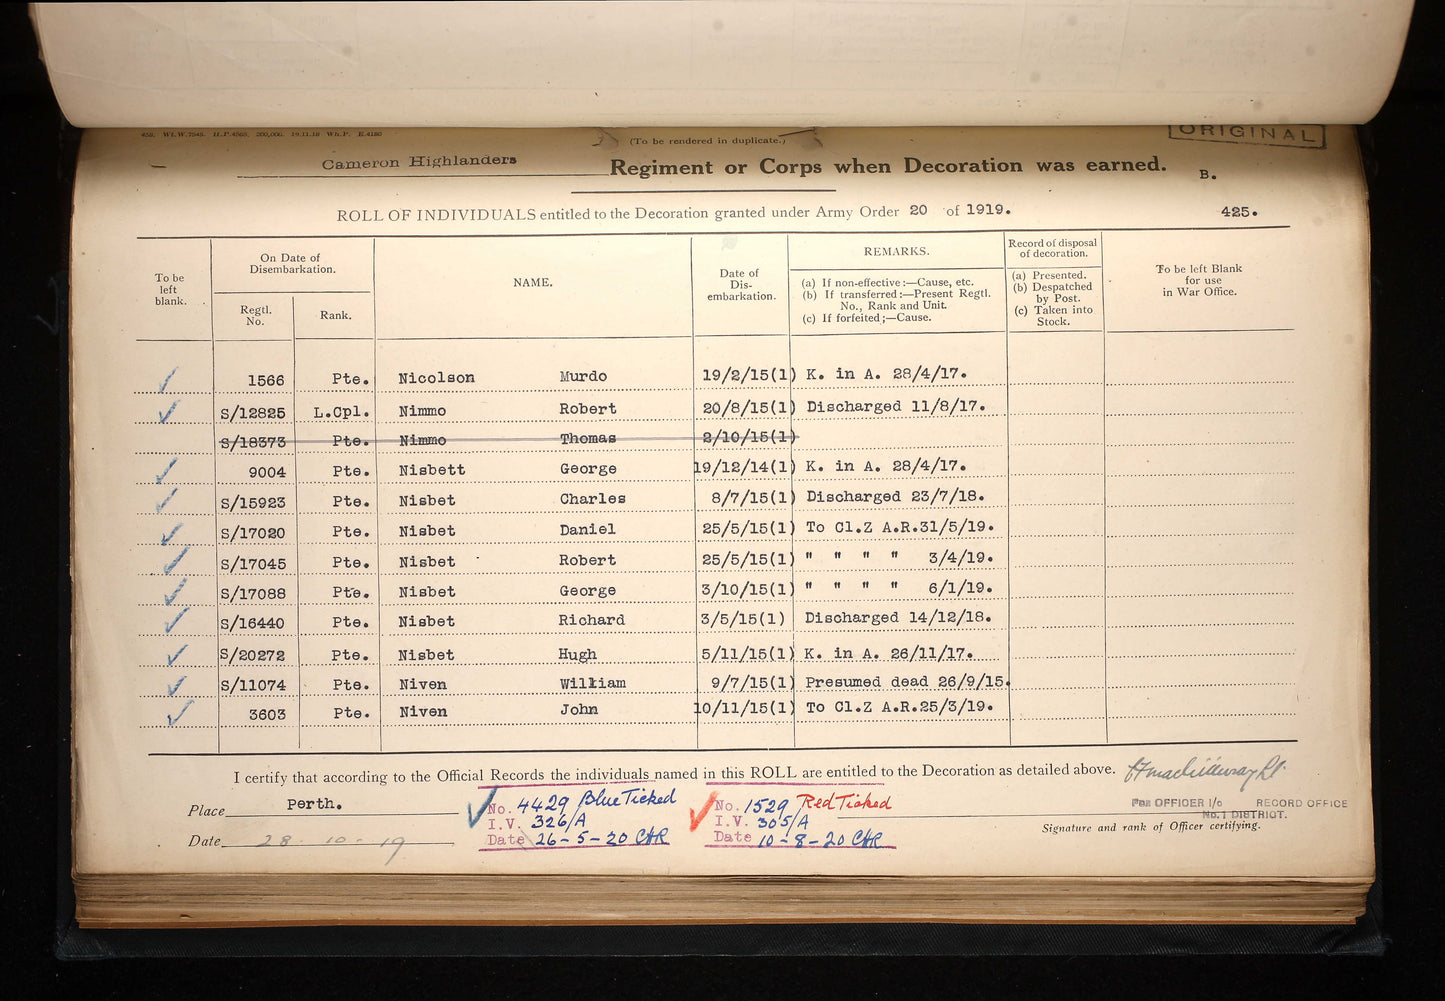 458. Wt.W.7548. H.P.4565. 200,000. 19.11.18 Wh.P. E.4180
(To be rendered in duplicate.)
ORIGINAL
Cameron Highlanders Regiment or Corps when Decoration was earned.
B.
ROLL OF INDIVIDUALS entitled to the Decoration granted under Army Order 20 of 1919. 425.
To be left blank.
On Date of Disembarkation.
Regtl. No.
Rank.
NAME.
Date of Dis-embarkation.
REMARKS.
(a) If non-effective:—Cause, etc.
(b) If transferred:—Present Regtl. No., Rank and Unit.
(c) If forfeited;—Cause.
Record of disposal of decoration.
(a) Presented.
(b) Despatched by Post.
(c) Taken into Stock.
To be left Blank for use in War Office.
1566 Pte. Nicolson Murdo 19/2/15(1) K. in A. 28/4/17.
S/12825 L.Cpl. Nimmo Robert 20/8/15(1) Discharged 11/8/17.
S/18373 Pte. Nimmo Thomas 2/10/15(1)
9004 Pte. Nisbett George 19/12/14(1) K. in A. 28/4/17.
S/15923 Pte. Nisbet Charles 8/7/15(1) Discharged 23/7/18.
S/17020 Pte. Nisbet Daniel 25/5/15(1) To Cl.Z A.R.31/5/19.
S/17045 Pte. Nisbet Robert 25/5/15(1) " " " " 3/4/19.
S/17088 Pte. Nisbet George 3/10/15(1) " " " " 6/1/19.
S/16440 Pte. Nisbet Richard 3/5/15(1) Discharged 14/12/18.
S/20272 Pte. Nisbet Hugh 5/11/15(1) K. in A. 26/11/17.
S/11074 Pte. Niven William 9/7/15(1) Presumed dead 26/9/15.
3603 Pte. Niven John 10/11/15(1) To Cl.Z A.R.25/3/19.
I certify that according to the Official Records the individuals named in this ROLL are entitled to the Decoration as detailed above.
Place Perth.
Date 28.10.19
No. 4429 Blue Ticked
I.V. 326/A
Date 26-5-20 CHR
No. 1529 Red Ticked
I.V. 305/A
Date 10-8-20 CHR
FOR OFFICER I/c RECORD OFFICE
No. 1 DISTRICT.
Signature and rank of Officer certifying.